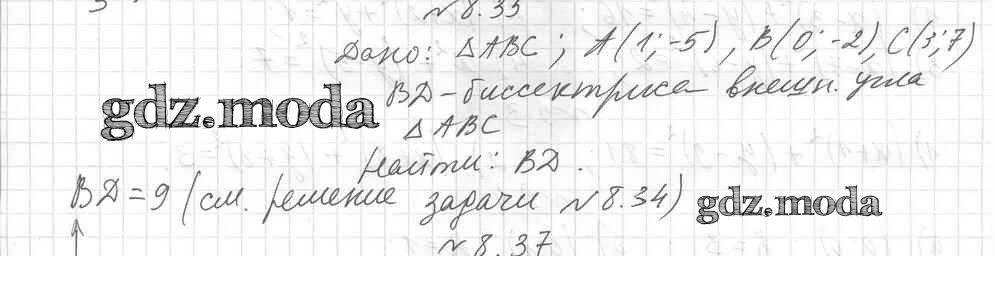 №8.35
Дано: △ABC; A(1;-5), B(0;-2), C(3;7)
BD-биссектриса внешн. угла
gdz.moda
△ABC
Найти: BD.
BD=9 (см. решение задачи №8.34) gdz.moda
№8.37